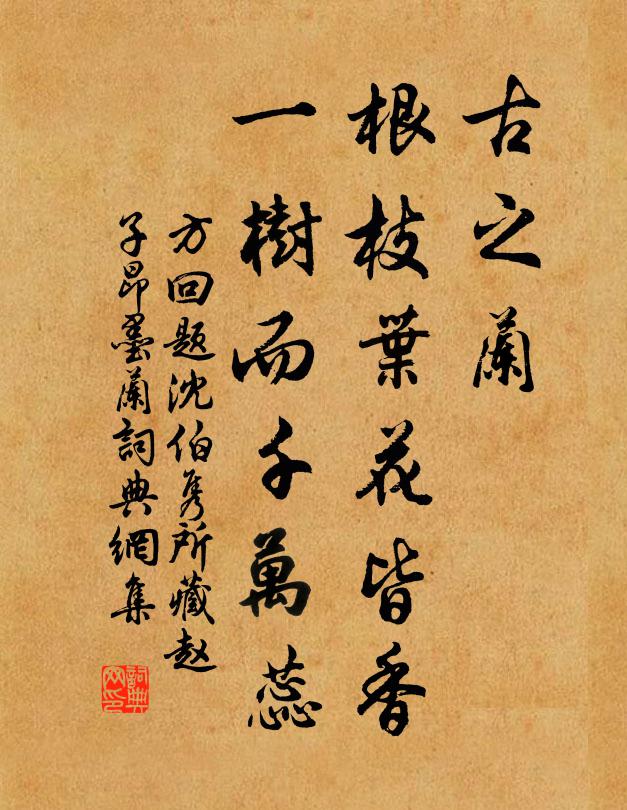 古之蘭
根枝葉花皆香
一樹而千萬蕊
方回题沈伯隽所藏赵
子昂墨蘭詞典網集
詞典
网印